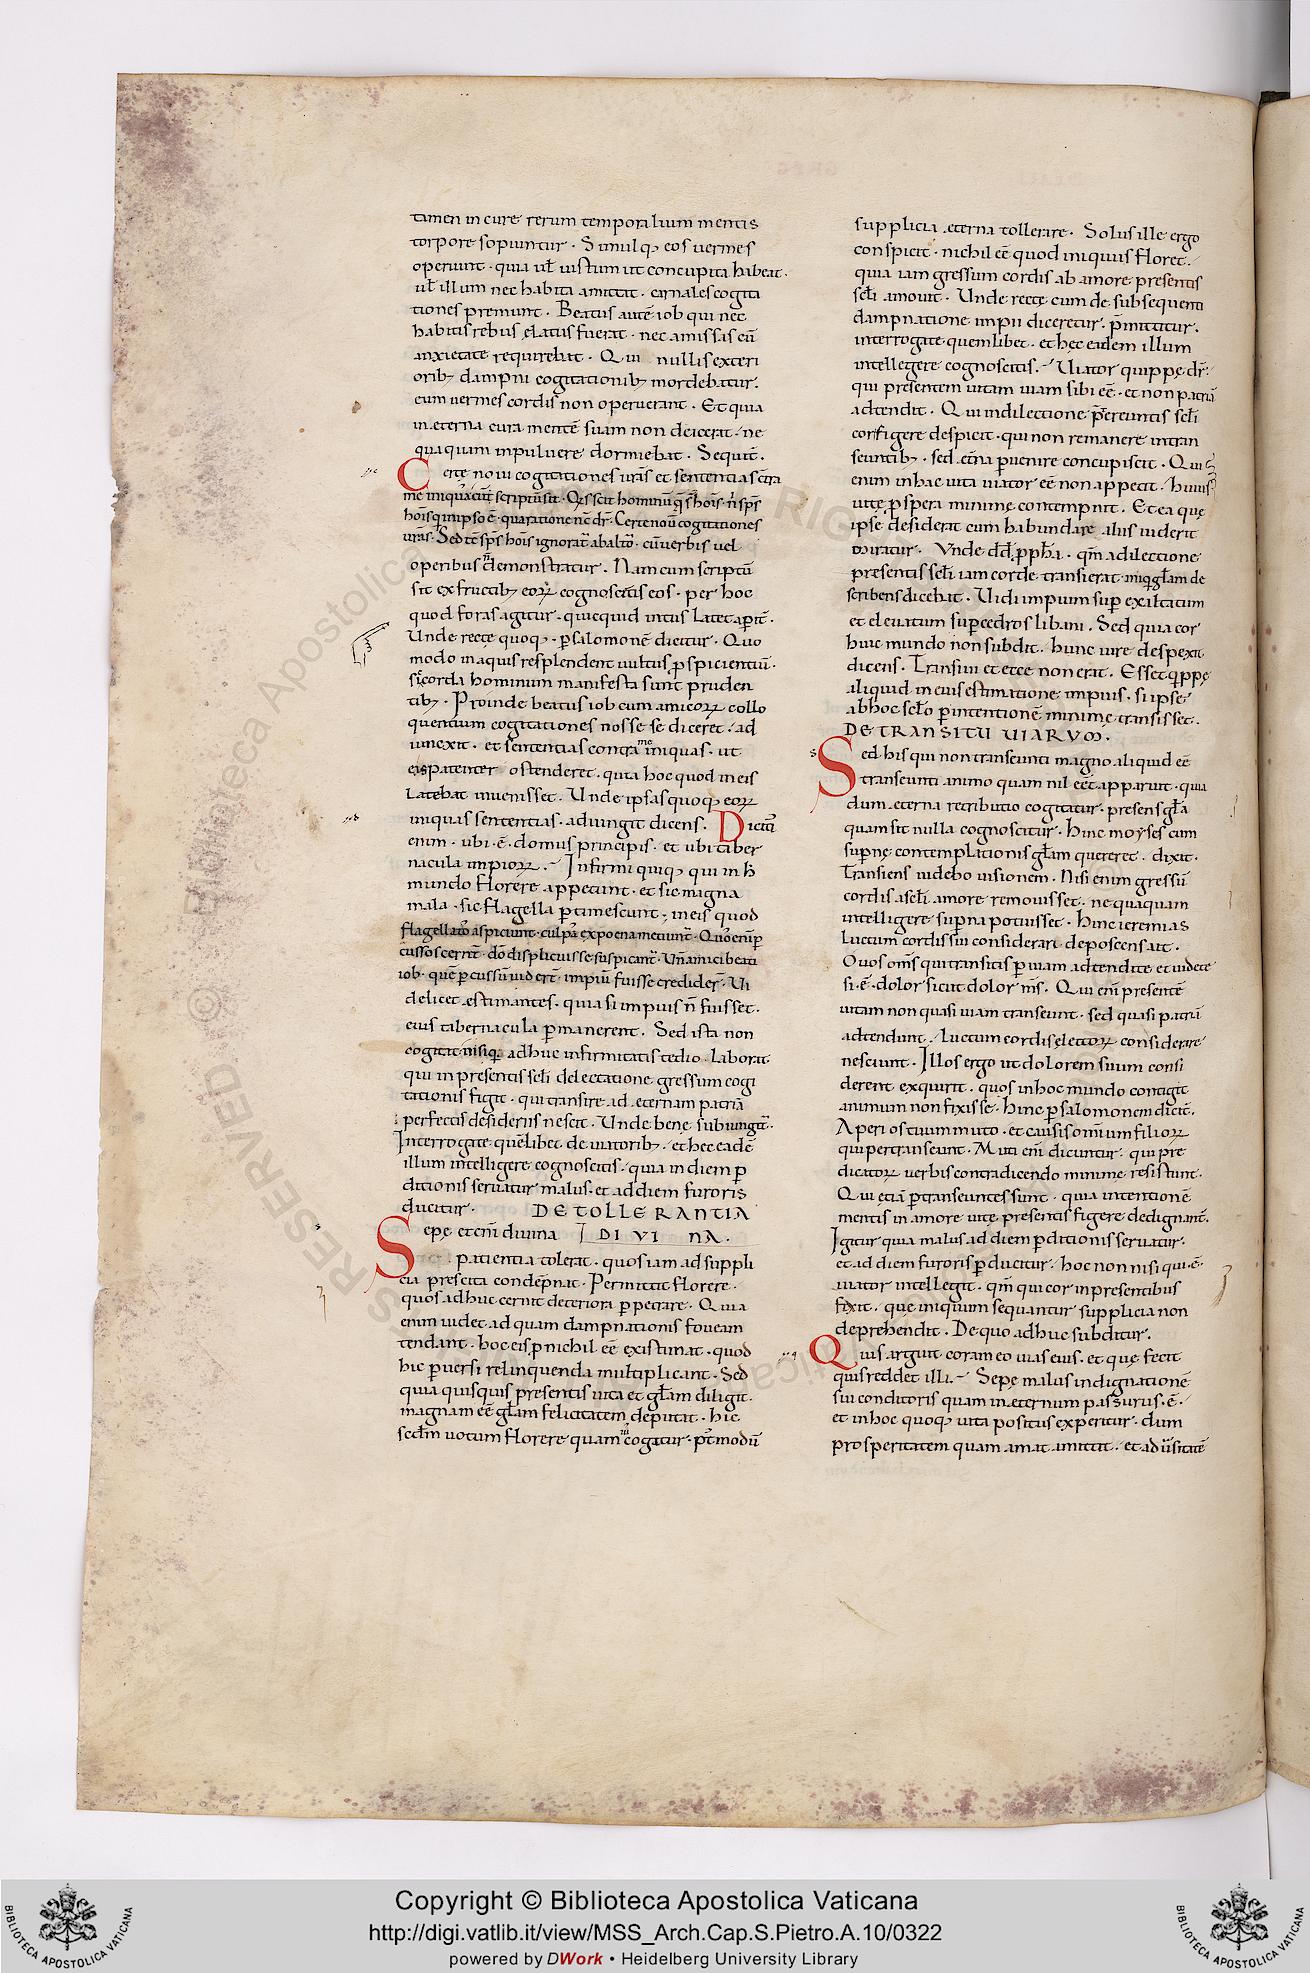 tamen in cure rerum temporalium mentis
torpore sopiuntur. Simulq; eos vermes
operiunt. quia ut̄ iustum ut concupita habeat.
ut̄ illum nec habita amittat. carnales cogita
tiones premunt. Beatus autē iob qui nec
habitis rebus elatus fuerat. nec amissas cū
anxietate requirebat. Qui nullis exteri
orib; dampni cogitationib; mordebatur.
eum vermes cordis non operuerant. Et quia
in eterna cura mentē suam non deicerat. ne
quaquam in pulvere dormiebat. Sequit̄.
Certe novi cogitationes vrās et sententias cōtra
me iniquas
hois q̄ in ipso ē. qua ratione nc̄ dr̄. Certe novi cogitationes
vrās. Sed tē sps̄ hois ignorat̄ ab alt̄o. cū verbis vel
operibus n̄ demonstratur. Nam cum scriptū
sit ex fructib; eorꝝ cognoscetis eos. per hoc
quod foras agitur. quicquid intus latet aperit̄.
Unde recte quoq; p salomonē dicitur. Quo
modo in aquis resplendent vultus pspicientiū.
sic corda hominum manifesta sunt pruden
tib;. Proinde beatus iob cum amicorꝝ collo
quentium cogitationes nosse se diceret. ad
iunxit. et sententias contra me iniquas. ut
eis patenter ostenderet. quia hoc quod in eis
latebat invenisset. Unde ipsas quoq; eorꝝ
iniquas sententias. adiungit dicens. Dicitis
enim. ubi. ē. domus principis. et ubi taber
nacula impiorꝝ. Infirmi quiq; qui in h̄
mundo florere appetunt. et sic magna
mala. sic flagella ptimescunt. in eis quod
flagellatos aspiciunt. culpā ex poena metiunt̄. Quos eni p
cussos cernt̄. dō displicuisse suspicant̄. Un̄ amici beati
iob. quē pcussū viderent̄. impiū fuisse credider̄. Vi
delicet estimantes. quia si impius n̄ fuisset.
eius tabernacula pmanerent. Sed ista non
cogitat nisi q̄ adhuc infirmitatis tedio laborat
qui in presentis scl̄i delectatione gressum cogi
tationis figit. qui transire ad eternam patriā
perfectis desideriis nescit. Unde bene subiungit̄.
Interrogate quēlibet de viatorib;. et hec eadē
illum intelligere cognoscetis. quia in diem p
ditionis servatur malus. et ad diem furoris
ducitur. DE TOLLERANTIA
Sepe etenī divina DIVINA.
patientia tolerat. quos iam ad suppli
cia prescita condēpnat. Permittit florere.
quos adhuc cernit deteriora ppetrare. Quia
enim videt ad quam dampnationis foveam
tendant. hoc eis p nichil eē existimat. quod
hic pversi relinquenda multiplicant. Sed
quia quisquis presentis vita et gl̄am diligit.
magnam eē gl̄am felicitatem deputat. hic
secdm votum florere quamvis cogatur. p̄t modū
supplicia eterna tollerare. Solus ille ergo
conspicit. nichil eē quod iniquus floret.
quia iam gressum cordis ab amore presentis
scl̄i amovit. Unde recte cum de subsequenti
dampnatione impii diceretur. p̄mittitur.
interrogate quemlibet. et hec eadem illum
intellegere cognoscetis. Viator quippe dr̄.
qui presentem vitam viam sibi eē. et non patriā
adtendit. Qui in dilectione p̄tereuntis scl̄i
cor figere despicit. qui non remanere in tran
seuntib;. sed eterna pvenire concupiscit. Qui
enim in hac vita viator eē non appetit. huius
vite pspera minime contempnit. Et ea que
ipse desiderat cum habundare alius viderit
miratur. Unde dd̄ pph̄a. qm̄ a dilectione
presentis scl̄i iam corde transierat. iniqi gl̄am de
scribens dicebat. Vidi impium sup exaltatum
et elevatum sup cedros libani. Sed quia cor
huic mundo non subdit. hunc iure despexit
dicens. Transivi et ecce non erat. Esset q̄ppe
aliquid in eius estimatione impius. si ipse
ab hoc scl̄o p intentionē minime transisset.
DE TRANSITU VIARUM.
Sed his qui non transeunti magno aliquid eē
transeunti animo quam nil eēt apparuit. quia
dum eterna retributio cogitatur. presens gl̄a
quam sit nulla cognoscitur. Hinc moyses cum
supne contemplationis gl̄am quereret. dixit.
Transiens videbo visionem. Nisi enim gressū
cordis a scl̄i amore removisset. nequaquam
intelligere supna potuisset. Hinc ieremias
luctum cordis sui considerari deposcens ait.
O vos om̄s qui transitis p viam adtendite et videte
si. ē. dolor sicut dolor m̄s. Qui enī presentē
vitam non quasi viam transeunt. sed quasi patriā
adtendunt. luctum cordis electorꝝ considerare
nesciunt. Illos ergo ut dolorem suum consi
derent exquirit. quos in hoc mundo contigit
animum non fixisse. Hinc p salomonem dicit̄.
Aperi os tuum muto. et causis omnium filiorꝝ
qui pertranseunt. Muti enī dicuntur. qui pre
dicatorꝝ verbis contradicendo minime resistunt.
Qui etiā ptranseuntes sunt. quia intentionē
mentis in amore vite presentis figere dedignant̄.
Igitur quia malus ad diem pditionis servatur.
et ad diem furoris pducitur. hoc non nisi qui. ē.
viator intellegit. qm̄ qui cor in presentibus
fixit. que iniquum sequantur supplicia non
deprehendit. De quo adhuc subditur.
Quis arguit coram eo vias eius. et que fecit
quis reddet illi. Sepe malus indignationē
sui conditoris quam in eternum passurus. ē.
et in hoc quoq; vita positus experitur. dum
prosperitatem quam amat amittit. et adūsitatē
Copyright © Biblioteca Apostolica Vaticana
http://digi.vatlib.it/view/MSS_Arch.Cap.S.Pietro.A.10/0322
powered by DWork • Heidelberg University Library